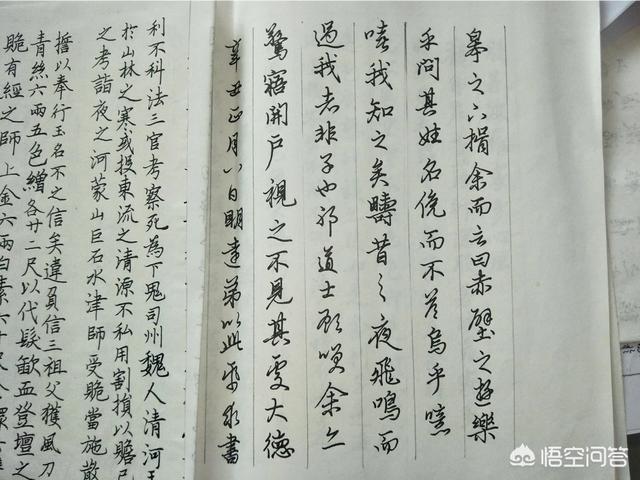 皋之下揖余而言曰赤壁之遊樂
乎問其姓名俛而不答烏乎噫
嘻我知之矣疇昔之夜飛鳴而
過我者非子也邪道士顧笑余亦
驚寤開戶視之不見其處大德
辛丑正月八日明遠弟以此帋求書
利不科法三官考察死為下鬼司州魏人清河王
於山林之寒或投東流之清源不私用割損以贍己
之考詣夜之河蒙山巨石水津師受跪當施散
誓以奉行玉名不之信矣違負信三祖父獲風刀
青絲六兩五色繒各廿二尺以代髮歃血登壇之
跪有經之師上金六兩白素六十尺金
悟空问答